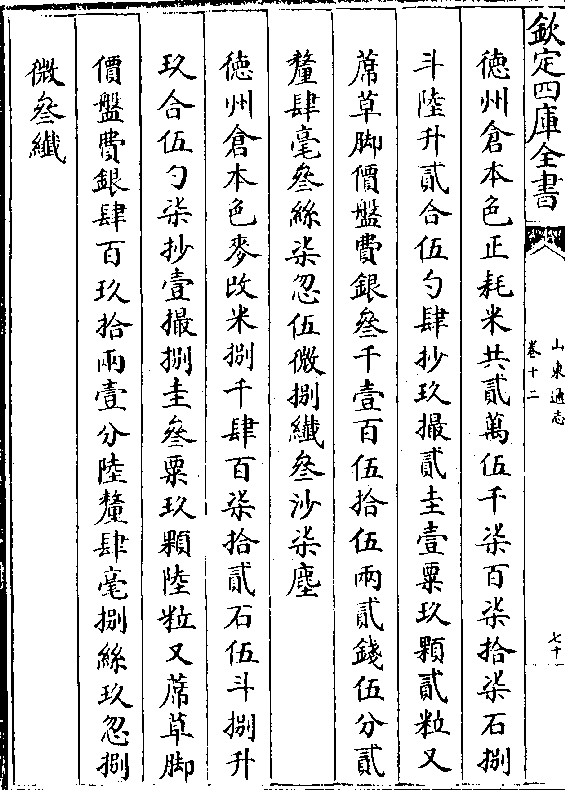 欽定四庫全書
山東通志
卷十二
七十
德州倉本色正耗米共貳萬伍千柒百柒拾柒石捌
斗陸升貳合伍勺肆抄玖撮貳圭壹粟玖顆貳粒又
蓆草脚價盤費銀叄千壹百伍拾伍兩貳錢伍分貳
釐肆毫叄絲柒忽伍微捌纖叄沙柒塵
德州倉本色麥改米捌千肆百柒拾貳石伍斗捌升
玖合伍勺柒抄壹撮捌圭叄粟玖顆陸粒又蓆草脚
價盤費銀肆百玖拾兩壹分陸釐肆毫捌絲玖忽捌
微叄纖